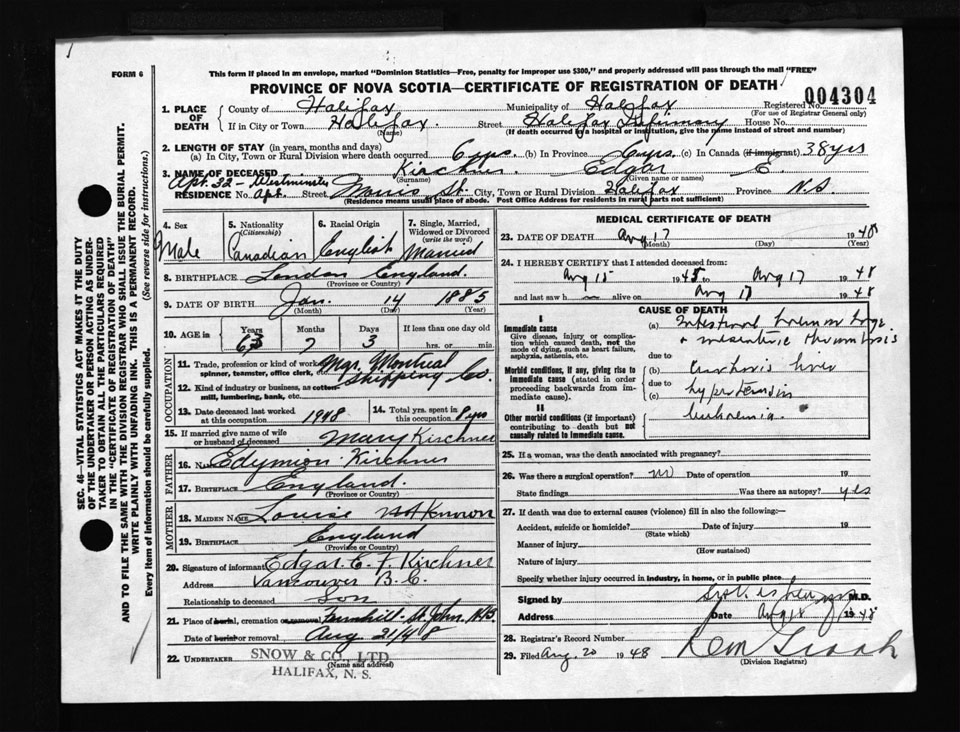 FORM 6
This form if placed in an envelope, marked "Dominion Statistics—Free, penalty for improper use $300," and properly addressed will pass through the mail "FREE"
PROVINCE OF NOVA SCOTIA—CERTIFICATE OF REGISTRATION OF DEATH
004304
1. PLACE OF DEATH
County of Halifax Municipality of Halifax Registered No.
(For use of Registrar General only)
If in City or Town Halifax Street Halifax Infirmary House No.
(Name) (If death occurred in a hospital or institution, give the name instead of street and number)
2. LENGTH OF STAY (in years, months and days)
(a) In City, Town or Rural Division where death occurred 6 yrs. (b) In Province 6 yrs. (c) In Canada (if immigrant) 38 yrs
3. NAME OF DECEASED Kirchner Edgar E.
(Surname) (Given name or names)
Apt. 32 - Westminster
RESIDENCE No. Apt. Street Morris St. City, Town or Rural Division Halifax Province N.S.
(Residence means usual place of abode. Post Office Address for residents in rural parts not sufficient)
4. Sex
Male
5. Nationality
(Citizenship)
Canadian
6. Racial Origin
English
7. Single, Married, Widowed or Divorced
(write the word)
Married
8. BIRTHPLACE London England.
(Province or Country)
9. DATE OF BIRTH Jan. 14 1885
(Month) (Day) (Year)
10. AGE in Years Months Days If less than one day old
63 7 3 hrs. or min.
OCCUPATION
11. Trade, profession or kind of work as spinner, teamster, office clerk, etc. Mgr. Montreal Shipping Co.
12. Kind of industry or business, as cotton-mill, lumbering, bank, etc.
13. Date deceased last worked at this occupation 1948
14. Total yrs. spent in this occupation 8 yrs
15. If married give name of wife or husband of deceased Mary Kirchner
FATHER
16. Name Edymion Kirchner
17. Birthplace England.
(Province or Country)
MOTHER
18. Maiden Name Louise Not Known
19. Birthplace England
(Province or Country)
20. Signature of informant Edgar. E. F. Kirchner
Address Vancouver B.C.
Relationship to deceased Son
21. Place of burial, cremation or removal Fernhill St. John. N.B.
Date of burial or removal Aug 21/48
22. UNDERTAKER SNOW & CO., LTD
(Name and address)
HALIFAX, N. S.
MEDICAL CERTIFICATE OF DEATH
23. DATE OF DEATH Aug 17 1948
(Month) (Day) (Year)
24. I HEREBY CERTIFY that I attended deceased from:
Aug 15 1948 to Aug 17 1948
and last saw h alive on Aug 17 1948
CAUSE OF DEATH
I
Immediate cause
Give disease, injury or complication which caused death, not the mode of dying, such as heart failure, asphyxia, asthenia, etc.
Morbid conditions, if any, giving rise to immediate cause (stated in order proceeding backwards from immediate cause).
II
Other morbid conditions (if important) contributing to death but not causally related to immediate cause.
(a) Intestinal hemorrhage
& mesenteric thrombosis
due to
(b) Cirrhosis liver
due to
(c) hypertension
25. If a woman, was the death associated with pregnancy?
26. Was there a surgical operation? no Date of operation 19
State findings Was there an autopsy? yes
27. If death was due to external causes (violence) fill in also the following:—
Accident, suicide or homicide? Date of injury 19
(State which)
Manner of injury
(How sustained)
Nature of injury
Specify whether injury occurred in industry, in home, or in public place
Signed by M.D.
Address Date Aug 18 1948
28. Registrar's Record Number
29. Filed Aug. 20 1948
(Division Registrar)
SEC. 46—VITAL STATISTICS ACT MAKES IT THE DUTY
OF THE UNDERTAKER OR PERSON ACTING AS UNDER-
TAKER TO OBTAIN ALL THE PARTICULARS REQUIRED
IN THE "CERTIFICATE OF REGISTRATION OF DEATH"
AND TO FILE THE SAME WITH THE DIVISION REGISTRAR WHO SHALL ISSUE THE BURIAL PERMIT.
WRITE PLAINLY WITH UNFADING INK. THIS IS A PERMANENT RECORD.
Every item of information should be carefully supplied. (See reverse side for instructions.)